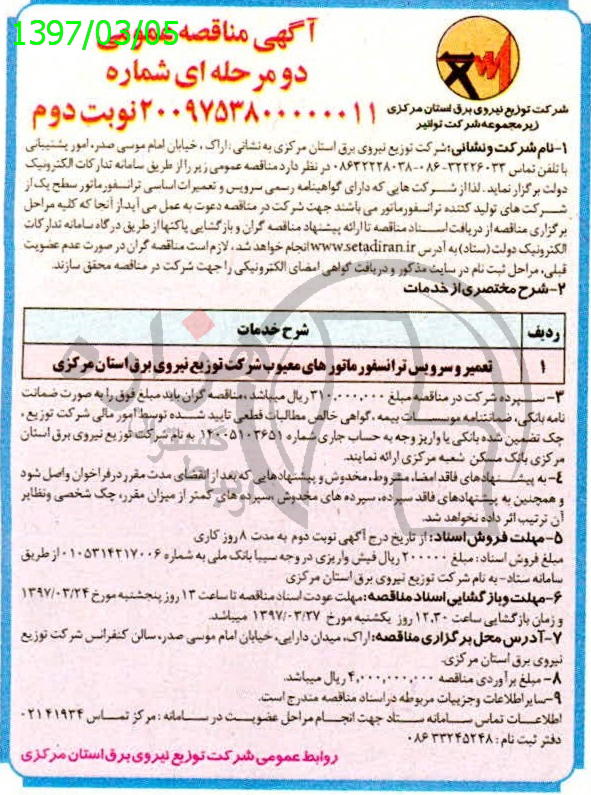 1397/03/05
آگهی مناقصه عمومی
دو مرحله ای شماره
۲۰۰۹۷۵۳۸۰۰۰۰۰۰۱۱ نوبت دوم
شرکت توزیع نیروی برق استان مرکزی
زیر مجموعه شرکت توانیر
۱-نام شرکت و نشانی: شرکت توزیع نیروی برق استان مرکزی به نشانی: اراک، خیابان امام موسی صدر، امور پشتیبانی
با تلفن تماس ۳۲۲۲۶۰۳۳-۰۸۶-۰۸۶۳۲۲۲۸۰۳۸ در نظر دارد مناقصه عمومی زیر را از طریق سامانه تدارکات الکترونیک
دولت برگزار نماید. لذا از شرکت هایی که دارای گواهینامه رسمی سرویس و تعمیرات اساسی ترانسفورماتور سطح یک از
شرکت های تولید کننده ترانسفورماتور می باشند جهت شرکت در مناقصه دعوت به عمل می آید از آنجا که کلیه مراحل
برگزاری مناقصه از دریافت اسناد مناقصه تا ارائه پیشنهاد مناقصه گران و بازگشایی پاکتها از طریق درگاه سامانه تدارکات
الکترونیک دولت (ستاد) به آدرس www.setadiran.ir انجام خواهد شد، لازم است مناقصه گران در صورت عدم عضویت
قبلی، مراحل ثبت نام در سایت مذکور و دریافت گواهی امضای الکترونیکی را جهت شرکت در مناقصه محقق سازند.
۲-شرح مختصری از خدمات
ردیف شرح خدمات
۱ تعمیر و سرویس ترانسفورماتور های معیوب شرکت توزیع نیروی برق استان مرکزی
۳- سپرده شرکت در مناقصه مبلغ ۳۱۰,۰۰۰,۰۰۰ ریال میباشد، مناقصه گران باید مبلغ فوق را به صورت ضمانت
نامه بانکی، ضمانتنامه موسسات بیمه، گواهی خالص مطالبات قطعی تایید شده توسط امور مالی شرکت توزیع،
چک تضمین شده بانکی یا واریز وجه به حساب جاری شماره ۱۴۰۰۵۱۰۳۶۵۱ به نام شرکت توزیع نیروی برق استان
مرکزی بانک مسکن شعبه مرکزی ارائه نمایند.
۴- به پیشنهادهای فاقد امضا، مشروط، مخدوش و پیشنهادهایی که بعد از انقضای مدت مقرر در فراخوان واصل شود
و همچنین به پیشنهادهای فاقد سپرده، سپرده های مخدوش، سپرده های کمتر از میزان مقرر، چک شخصی و نظایر
آن ترتیب اثر داده نخواهد شد.
۵-مهلت فروش اسناد: از تاریخ درج آگهی نوبت دوم به مدت ۸ روز کاری
مبلغ فروش اسناد: مبلغ ۲۰۰۰۰۰ ریال فیش واریزی در وجه سیبا بانک ملی به شماره ۰۱۰۵۳۱۴۲۱۷۰۰۶ از طریق
سامانه ستاد- به نام شرکت توزیع نیروی برق استان مرکزی
۶-مهلت و بازگشایی اسناد مناقصه: مهلت عودت اسناد مناقصه تا ساعت ۱۳ روز پنجشنبه مورخ ۱۳۹۷/۰۳/۲۴
و زمان بازگشایی ساعت ۱۲.۳۰ روز یکشنبه مورخ ۱۳۹۷/۰۳/۲۷ میباشد.
۷-آدرس محل برگزاری مناقصه: اراک، میدان دارایی، خیابان امام موسی صدر، سالن کنفرانس شرکت توزیع
نیروی برق استان مرکزی.
۸- مبلغ برآوردی مناقصه ۴,۰۰۰,۰۰۰,۰۰۰ ریال میباشد.
۹-سایر اطلاعات و جزییات مربوطه در اسناد مناقصه مندرج است.
اطلاعات تماس سامانه ستاد جهت انجام مراحل عضویت در سامانه: مرکز تماس ۰۲۱۴۱۹۳۴
دفتر ثبت نام: ۳۳۲۴۵۲۴۸ ۰۸۶
روابط عمومی شرکت توزیع نیروی برق استان مرکزی